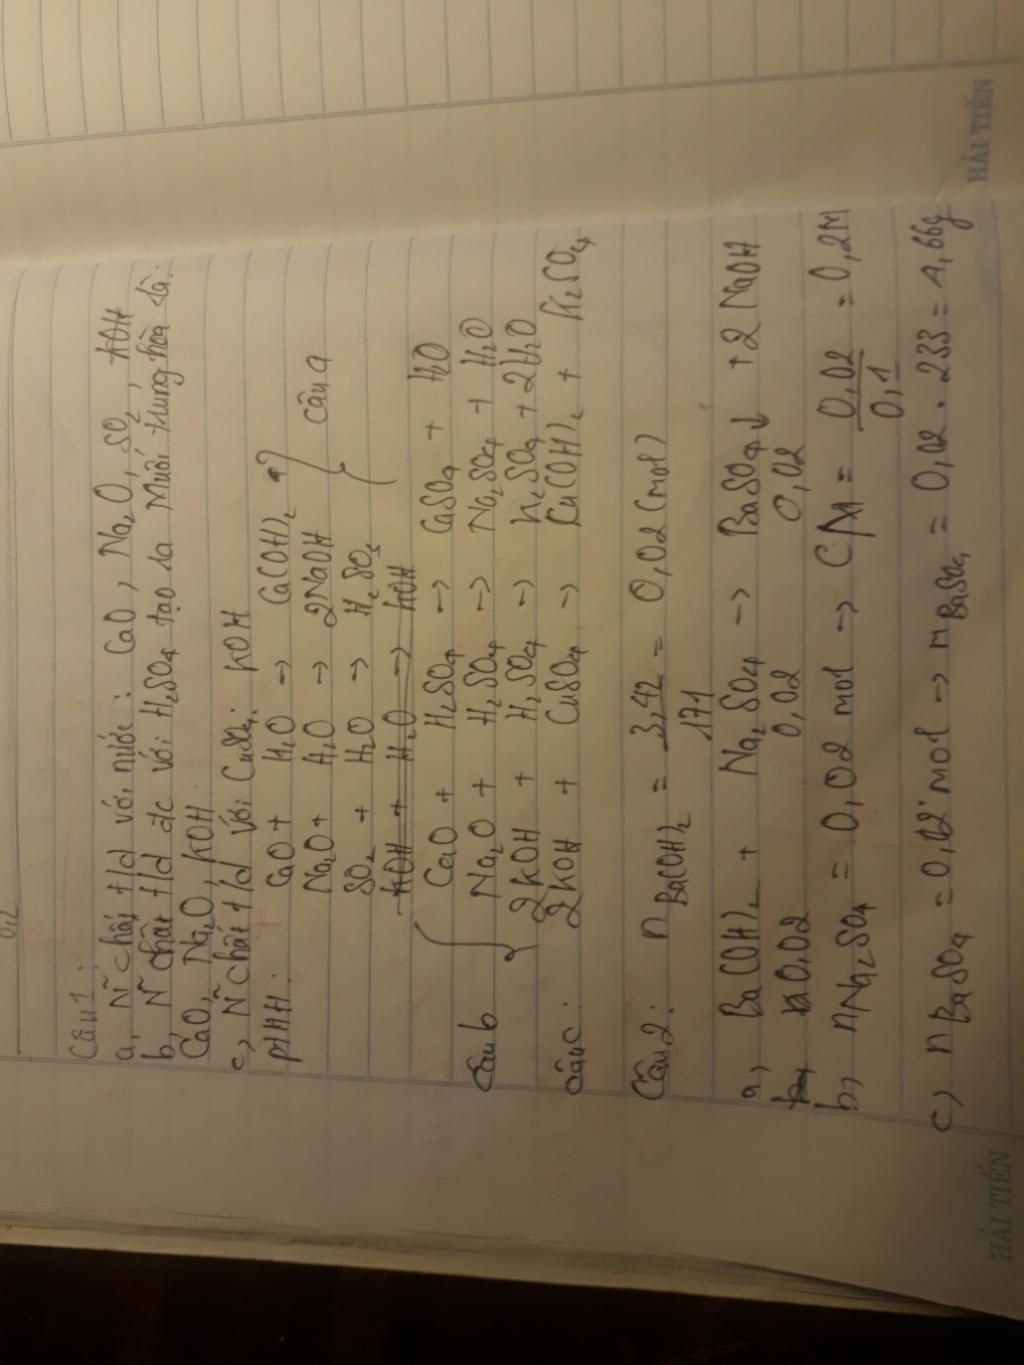 0,2
Câu 1:
a, N~ chất t/d với nước: CaO, Na2O, SO2, KOH
b, N~ chất t/d đc với H2SO4 tạo ra Muối trung hòa là:
CaO, Na2O, KOH
c, N~ chất t/d với CuSO4: KOH
PTHH: CaO + H2O -> Ca(OH)2
Na2O + H2O -> 2NaOH
câu a
SO2 + H2O -> H2SO3
KOH + H2O -> KOH
CaO + H2SO4 -> CaSO4 + H2O
Câu b Na2O + H2SO4 -> Na2SO4 + H2O
2KOH + H2SO4 -> K2SO4 + 2H2O
câu c: 2KOH + CuSO4 -> Cu(OH)2 + K2SO4
Câu 2: n Ba(OH)2 = 3,42/171 = 0,02 (mol)
a, Ba(OH)2 + Na2SO4 -> BaSO4↓ + 2NaOH
0,02 0,02 0,02
b, nNa2SO4 = 0,02 mol -> CM = 0,02/0,1 = 0,2M
c) n BaSO4 = 0,02 mol -> m BaSO4 = 0,02 . 233 = 4,66g
HẢI TIẾN
HẢI TIẾN